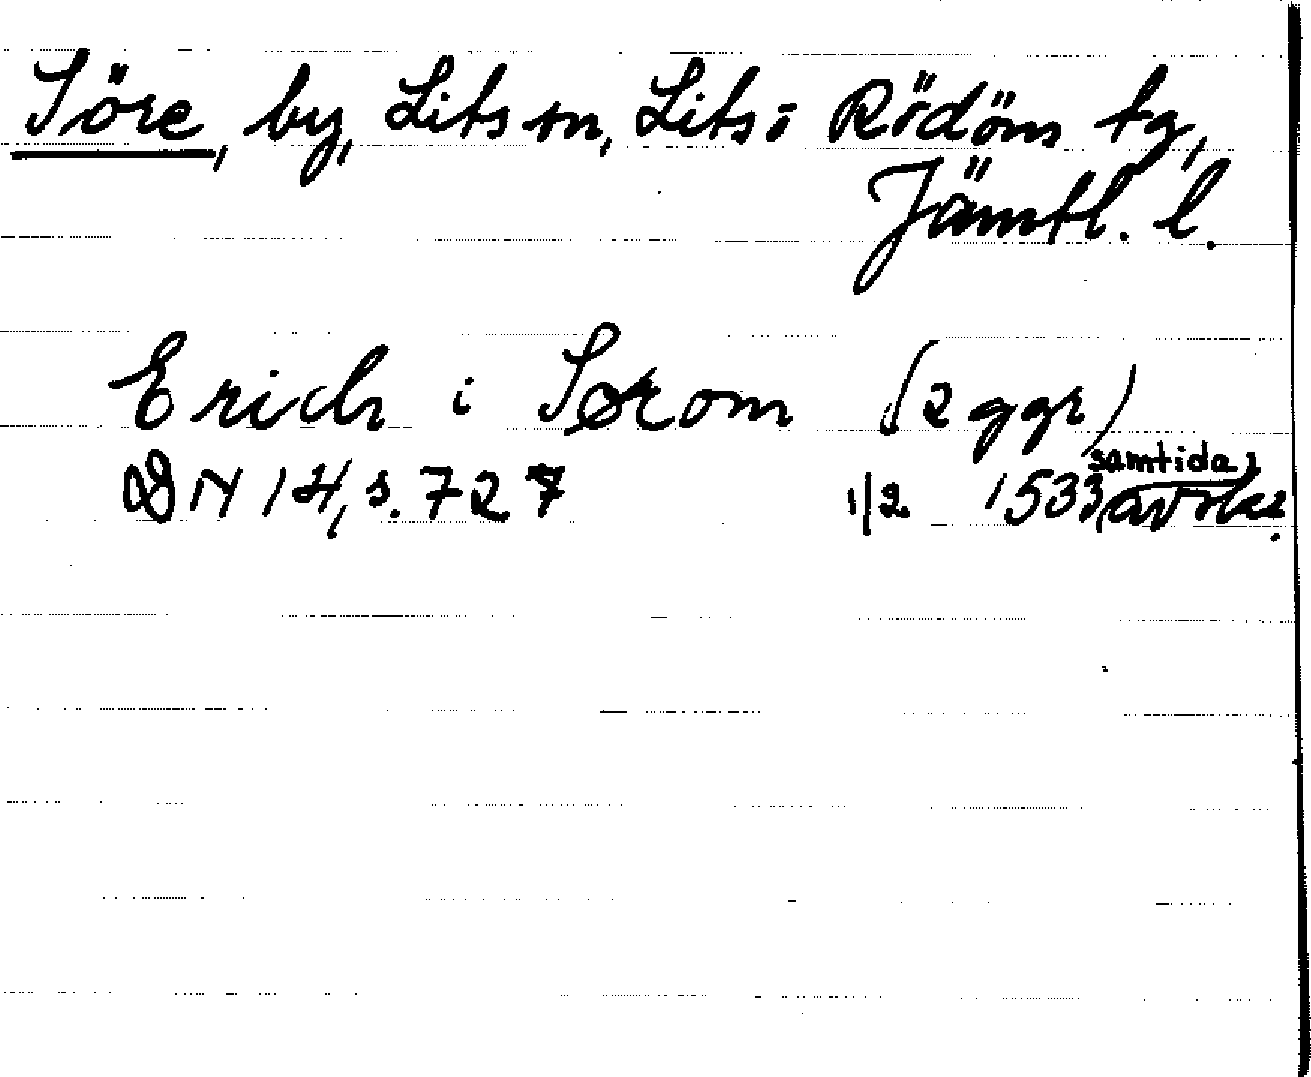 Söre, by, Lits sn, Lits o Rödöns tg,
Jämtl. l.
Erich i Sørom (2 ggr)
DN 14, s. 727 1/2 1533 (samtida avskr.